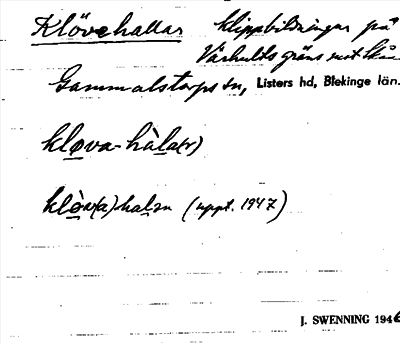 Klövehallar klippbildningar på
Vårhults gräns mot Skåne
Gammalstorps sn, Listers hd, Blekinge län.
klova-hàla(r)
klòv(a)-halar (uppt. 1947)
J. SWENNING 1946